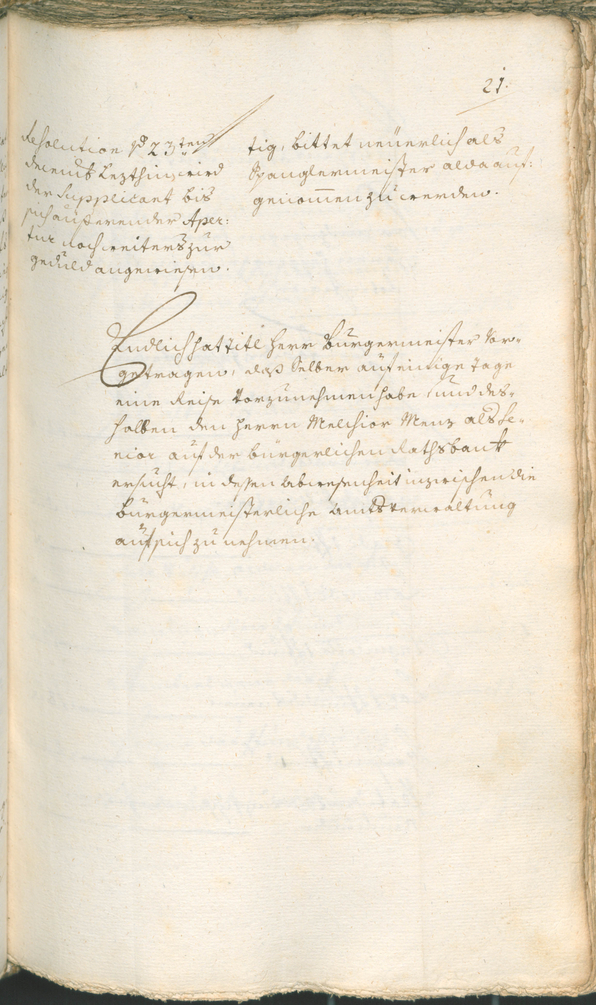 21.
Resolution de 23ten
decemb: lezthin wird
der Supplicant bis
sich äusserender Aper:
tur noch weiters zur
geduld angewiesen.
tig, bittet neüerlich als
Spanglermeister alda auf:
genommen zu werden.
Endlich hat titl Herr Burgermeister vor-
getragen, daß Selber auf einige tage
eine Reise vorzunehmen habe, und des-
halben den Herrn Melchior Menz als Se-
nior auf der bürgerlichen Rathsbank
ersucht, in dessen abwesenheit inzwischen die
Bürgermeisterliche Amtsverwaltung
auf sich zu nehmen.